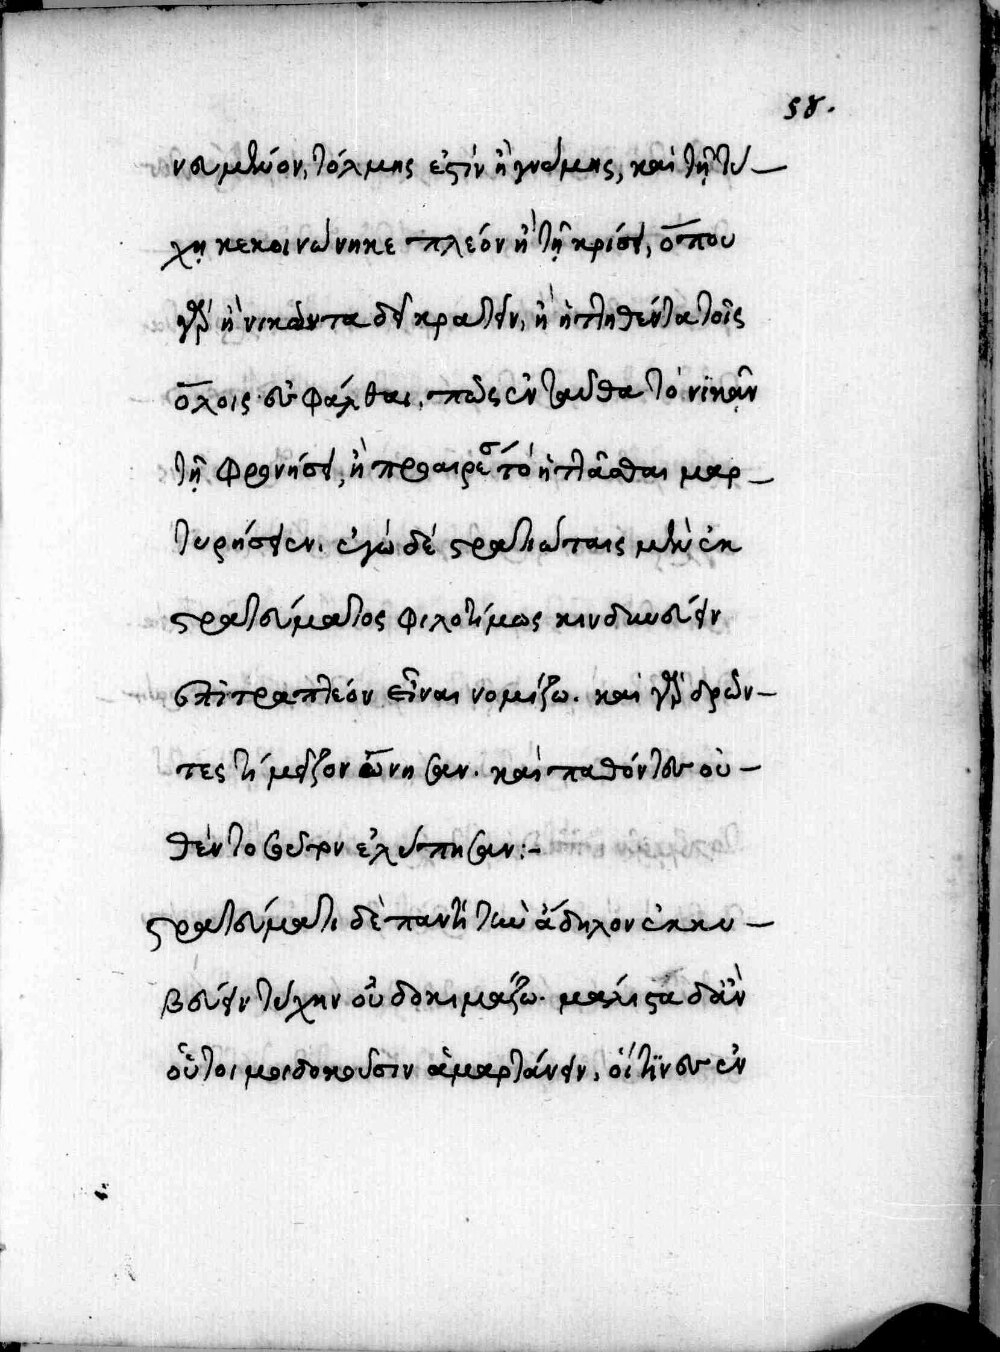 58.
νομενον, τόλμης ἐστὶν ἢ γνώμης, καὶ τῇ τύ—
χῃ κεκοινώνηκε πλεόν ἢ τῇ κρίσει, ὅπου
γὰρ ἢ νικῶντα δεῖ κρατεῖν, ἢ ἡττηθέντα τοῖς
ὅλοις ἐσφάλθαι, πῶς ἐνταῦθα τὸ νικᾶν
τῇ φρονήσει, ἢ προαιρέσει τὸ ἡττᾶσθαι μαρ—
τυρήσειεν. ἐγὼ δέ στρατιώταις μὲν ἐκ
στρατεύματος φιλοτίμως κινδυνεύειν
ἐπιτραπτέον εἶναι νομίζω. καὶ γὰρ δρῶν—
τες τί μεῖζον ὤνησαν. καὶ παθόντες οὐ—
θὲν τοσοῦτον ἐλύπησαν:-
στρατεύματι δὲ παντὶ τὴν ἄδηλον ἐκκυ—
βεύειν τύχην οὐ δοκιμάζω. μάλιστα δ' ἂν
οὗτοι μοι δοκοῦσιν ἁμαρτάνειν, οἵτινες ἐν